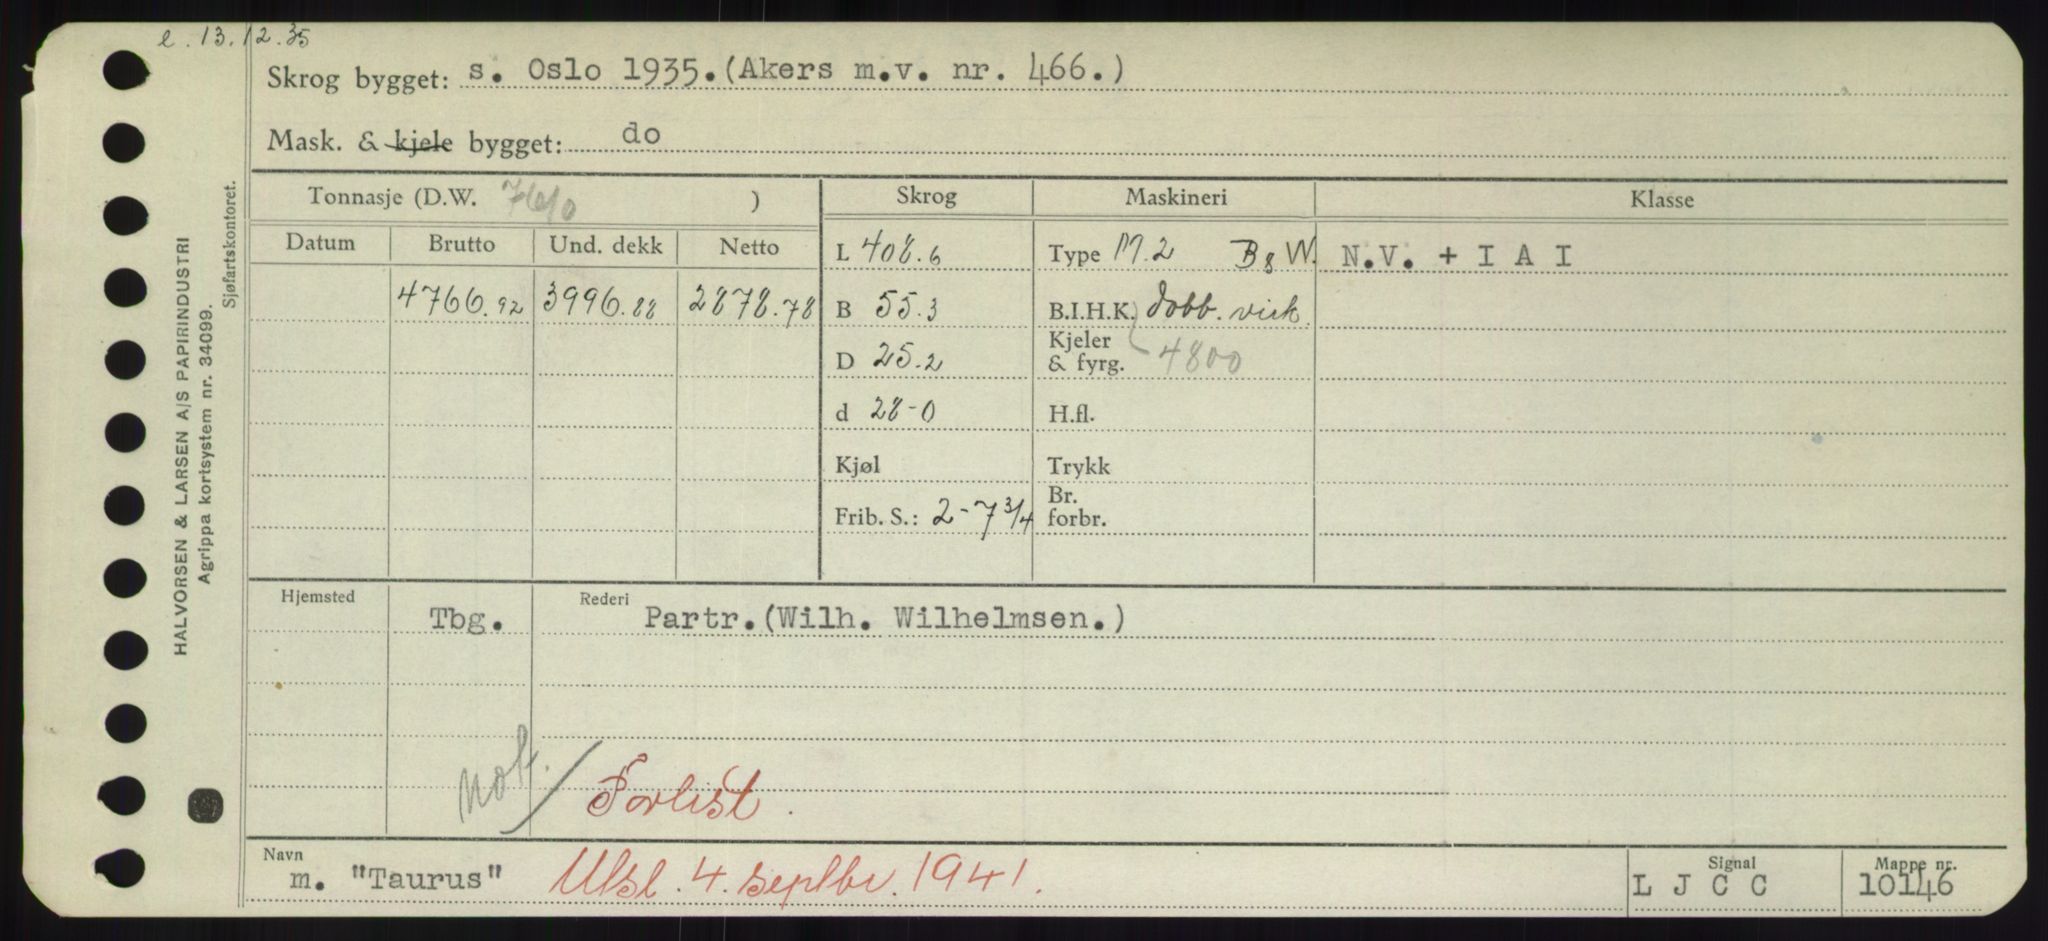 e. 13.12.35
Skrog bygget: s. Oslo 1935.(Akers m.v. nr. 466.)
Mask. & kjele bygget: do
Tonnasje (D.W. 7610 ) Skrog Maskineri Klasse
Datum Brutto Und. dekk Netto L 408.6 Type M.2 B & W. N.V. + I A I
4766.92 3996.88 2878.78 B 55.3 B.I.H.K. dobb. virk.
D 25.2 Kjeler & fyrg. 4800
d 28-0 H.fl.
Kjøl Trykk
Frib. S.: 2-7 3/4 Br. forbr.
Hjemsted Tbg. Rederi Partr.(Wilh. Wilhelmsen.)
not. / Forlist.
Navn m. "Taurus" Utsl. 4. septbr. 1941. Signal L J C C Mappe nr. 10146
HALVORSEN & LARSEN A/S PAPIRINDUSTRI
Agrippa kortsystem nr. 34099.
Sjøfartskontoret.